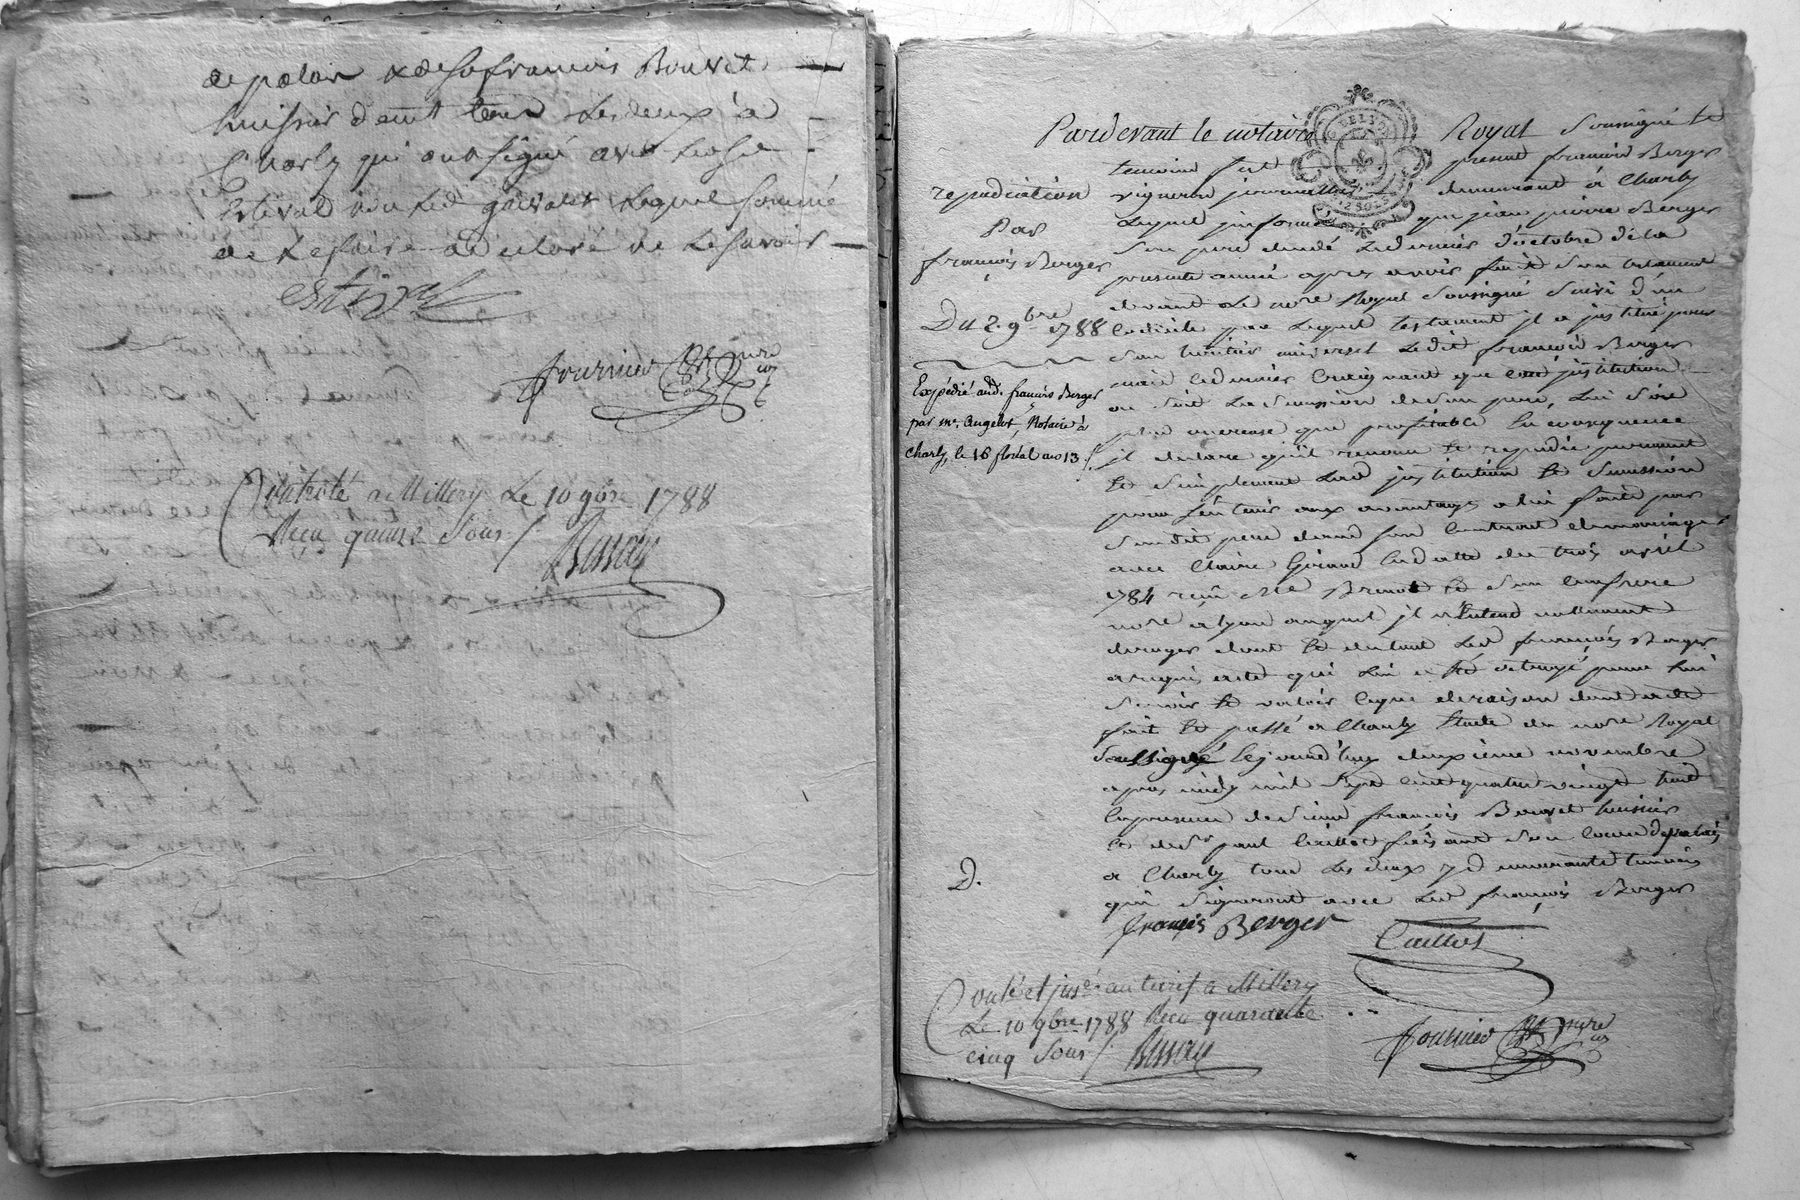 de palais & de Sr françois Bouvet
huissier demt tous Les deux à
Charly qui ont signé avec Ledit
Estival non Led. lequel sommé
de Le faire a declaré ne Le savoir
estival
fournier
Controlé a Millery Le 10 9bre 1788
Reçu quinze Sous /.
repudiation
Par
françois Berger
Du 2. 9bre 1788
Expédié aud. françois Berger
par me. Angelot, Notaire à
Charly, le 16 floréal an 13 /.
D.
Pardevant le notaire Royal Soussigné et
temoins fut present françois Berger
vigneron demeurant à Charly
Lequel informé que jean pierre Berger
Son pere decedé Le dernier d'octobre de la
presente année apres avoir fait Son testament
devant Le nore Royal Soussigné Suivi d'un
Codicile par Lequel testament il a institué pour
Son heritier universel Ledit françois Berger
mais ce dernier Craignant que Lad. institution
ou Soit La Succession de Son pere, Lui Soit
plus onereuse que profitable En consequence
il declare qu'il renonce et repudie purement
et Simplement Lad. institution et Succession
pour S'en tenir aux avantages a lui faits par
Sondit pere dans Son Contract de mariage
avec Claire Giraud en datte du trois avril
1784 reçu Me Brenot et Son Confrere
nore a Lyon auquel il n'Entend nullement
deroger dont et du tout Led. françois Berger
a requis acte qui Lui a été octroyé pour Lui
Servir et valoir ce que de raison dont acte
fait et passé a Charly Etude du nore Royal
Soussigné Cejourd'huy deuxieme novembre
apres midy mil Sept Cent quatre vingt huit
En presence de Sieur françois Bouvet huissier
et de Sr paul Caillot de palais
a Charly tous Les deux y demeurants temoins
qui Signeront avec Led. françois Berger
francois Berger
Caillot
Controlé et insé. au tarif a Millery
Le 10 9bre 1788 Recu quarante
cinq Sous /.
fournier